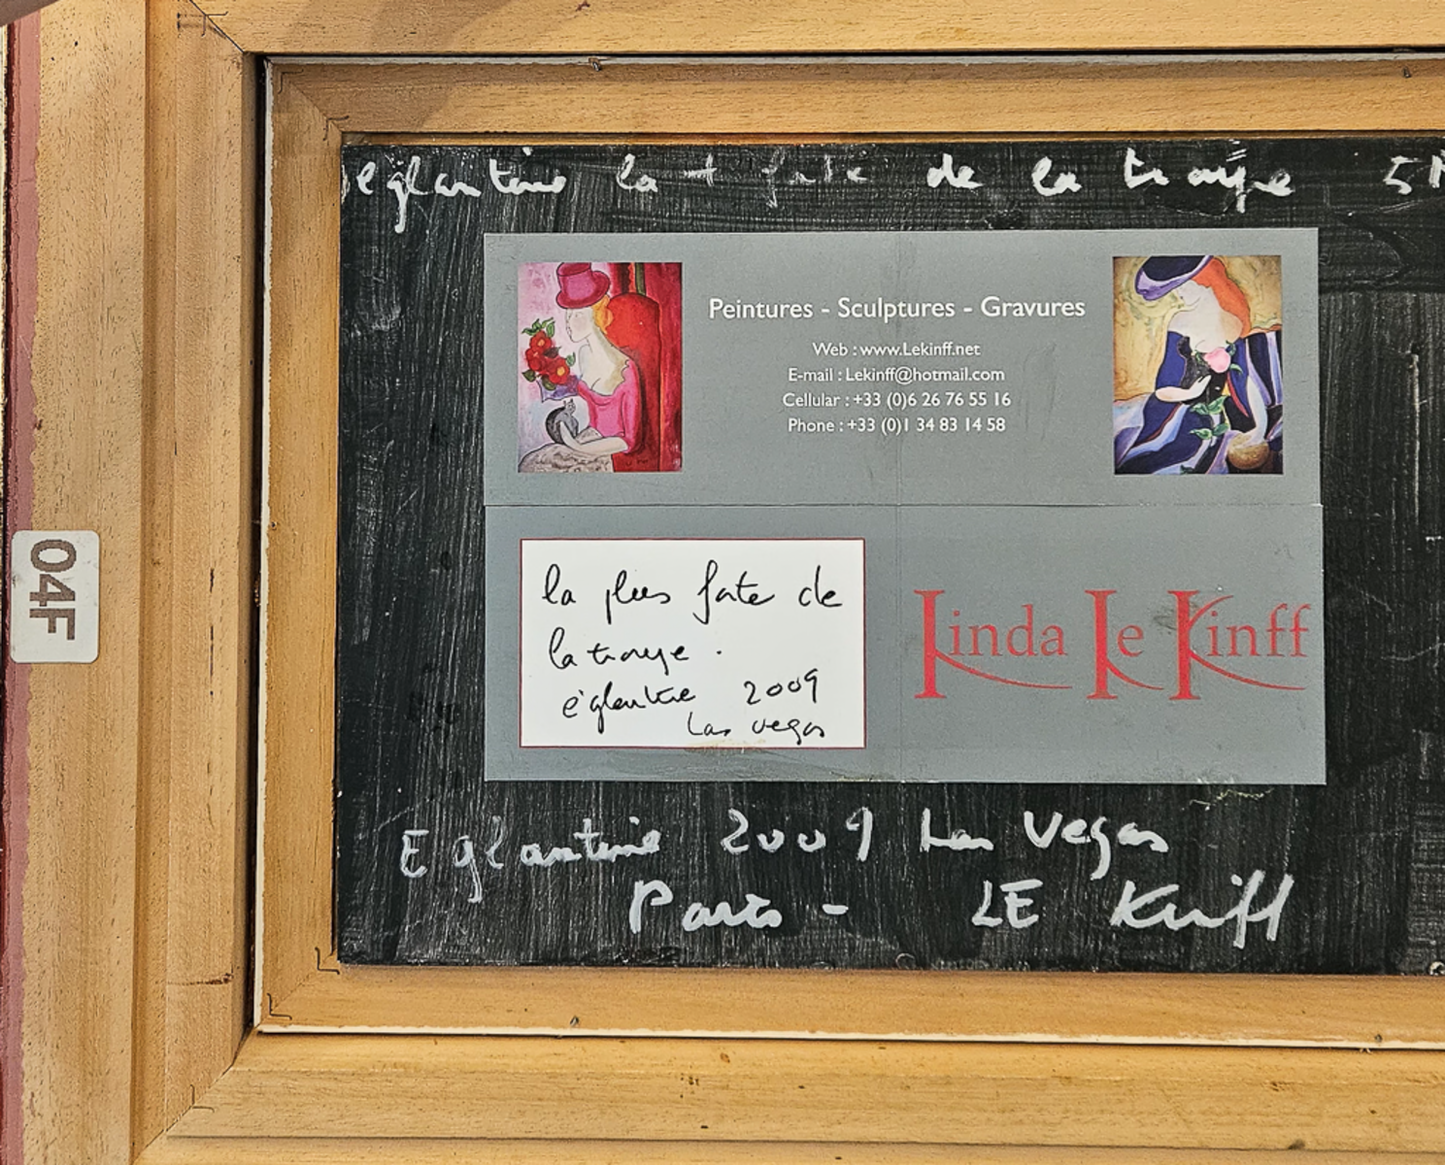 églantine la + futé de la troupe 5
Peintures - Sculptures - Gravures
Web : www.Lekinff.net
E-mail : Lekinff@hotmail.com
Cellular : +33 (0)6 26 76 55 16
Phone : +33 (0)1 34 83 14 58
04F
la plus futé de
la troupe .
églantine 2009
Las vegas
Linda Le Kinff
Eglantine 2009 Las Vegas
Paris - LE Kinff